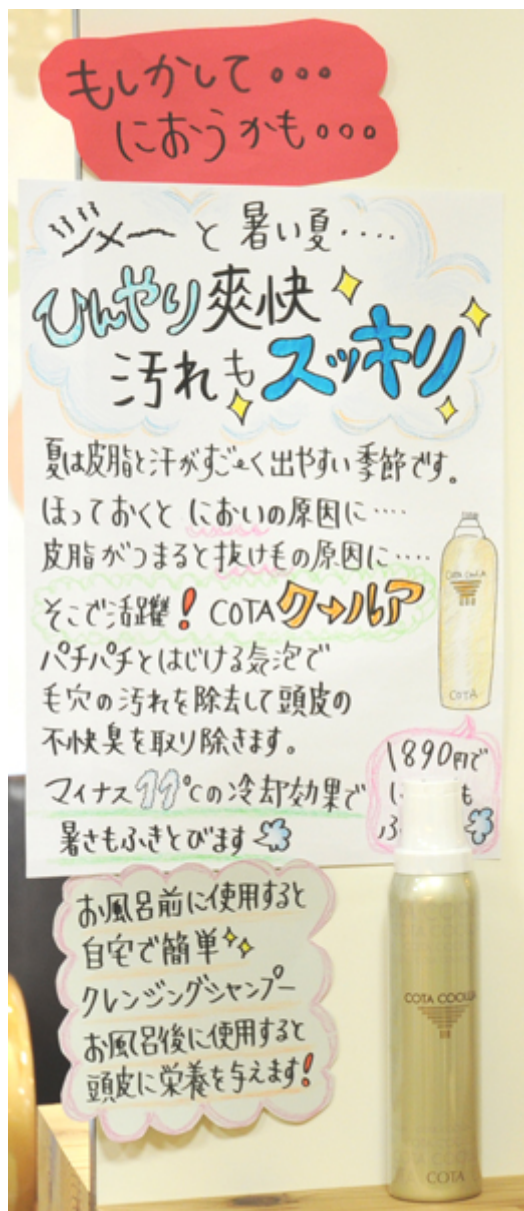 もしかして・・・
におうかも・・・
ジメ〜と暑い夏・・・・
ひんやり爽快
汚れもスッキリ
夏は皮脂と汗がすご〜く出やすい季節です。
ほっておくとにおいの原因に・・・・
皮脂がつまると抜け毛の原因に・・・・
そこで活躍！COTAクールア
パチパチとはじける気泡で
毛穴の汚れを除去して頭皮の
不快臭を取り除きます。
マイナス11℃の冷却効果で
暑さもふきとびます
COTA COOLA
COTA
1890円で
も
お風呂前に使用すると
自宅で簡単
クレンジングシャンプー
お風呂後に使用すると
頭皮に栄養を与えます！
COTA COOLA
COTA